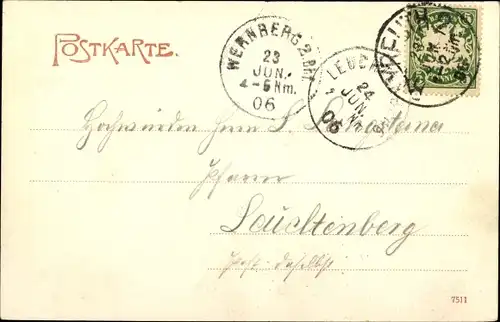 POSTKARTE.
WERNBERG 2. BHF
23
JUN.
4-5 Nm.
06
LEUCH
24
JUN.
06
Hochwürden Herrn
Pfarrer
Leuchtenberg
Post daselbst
7511